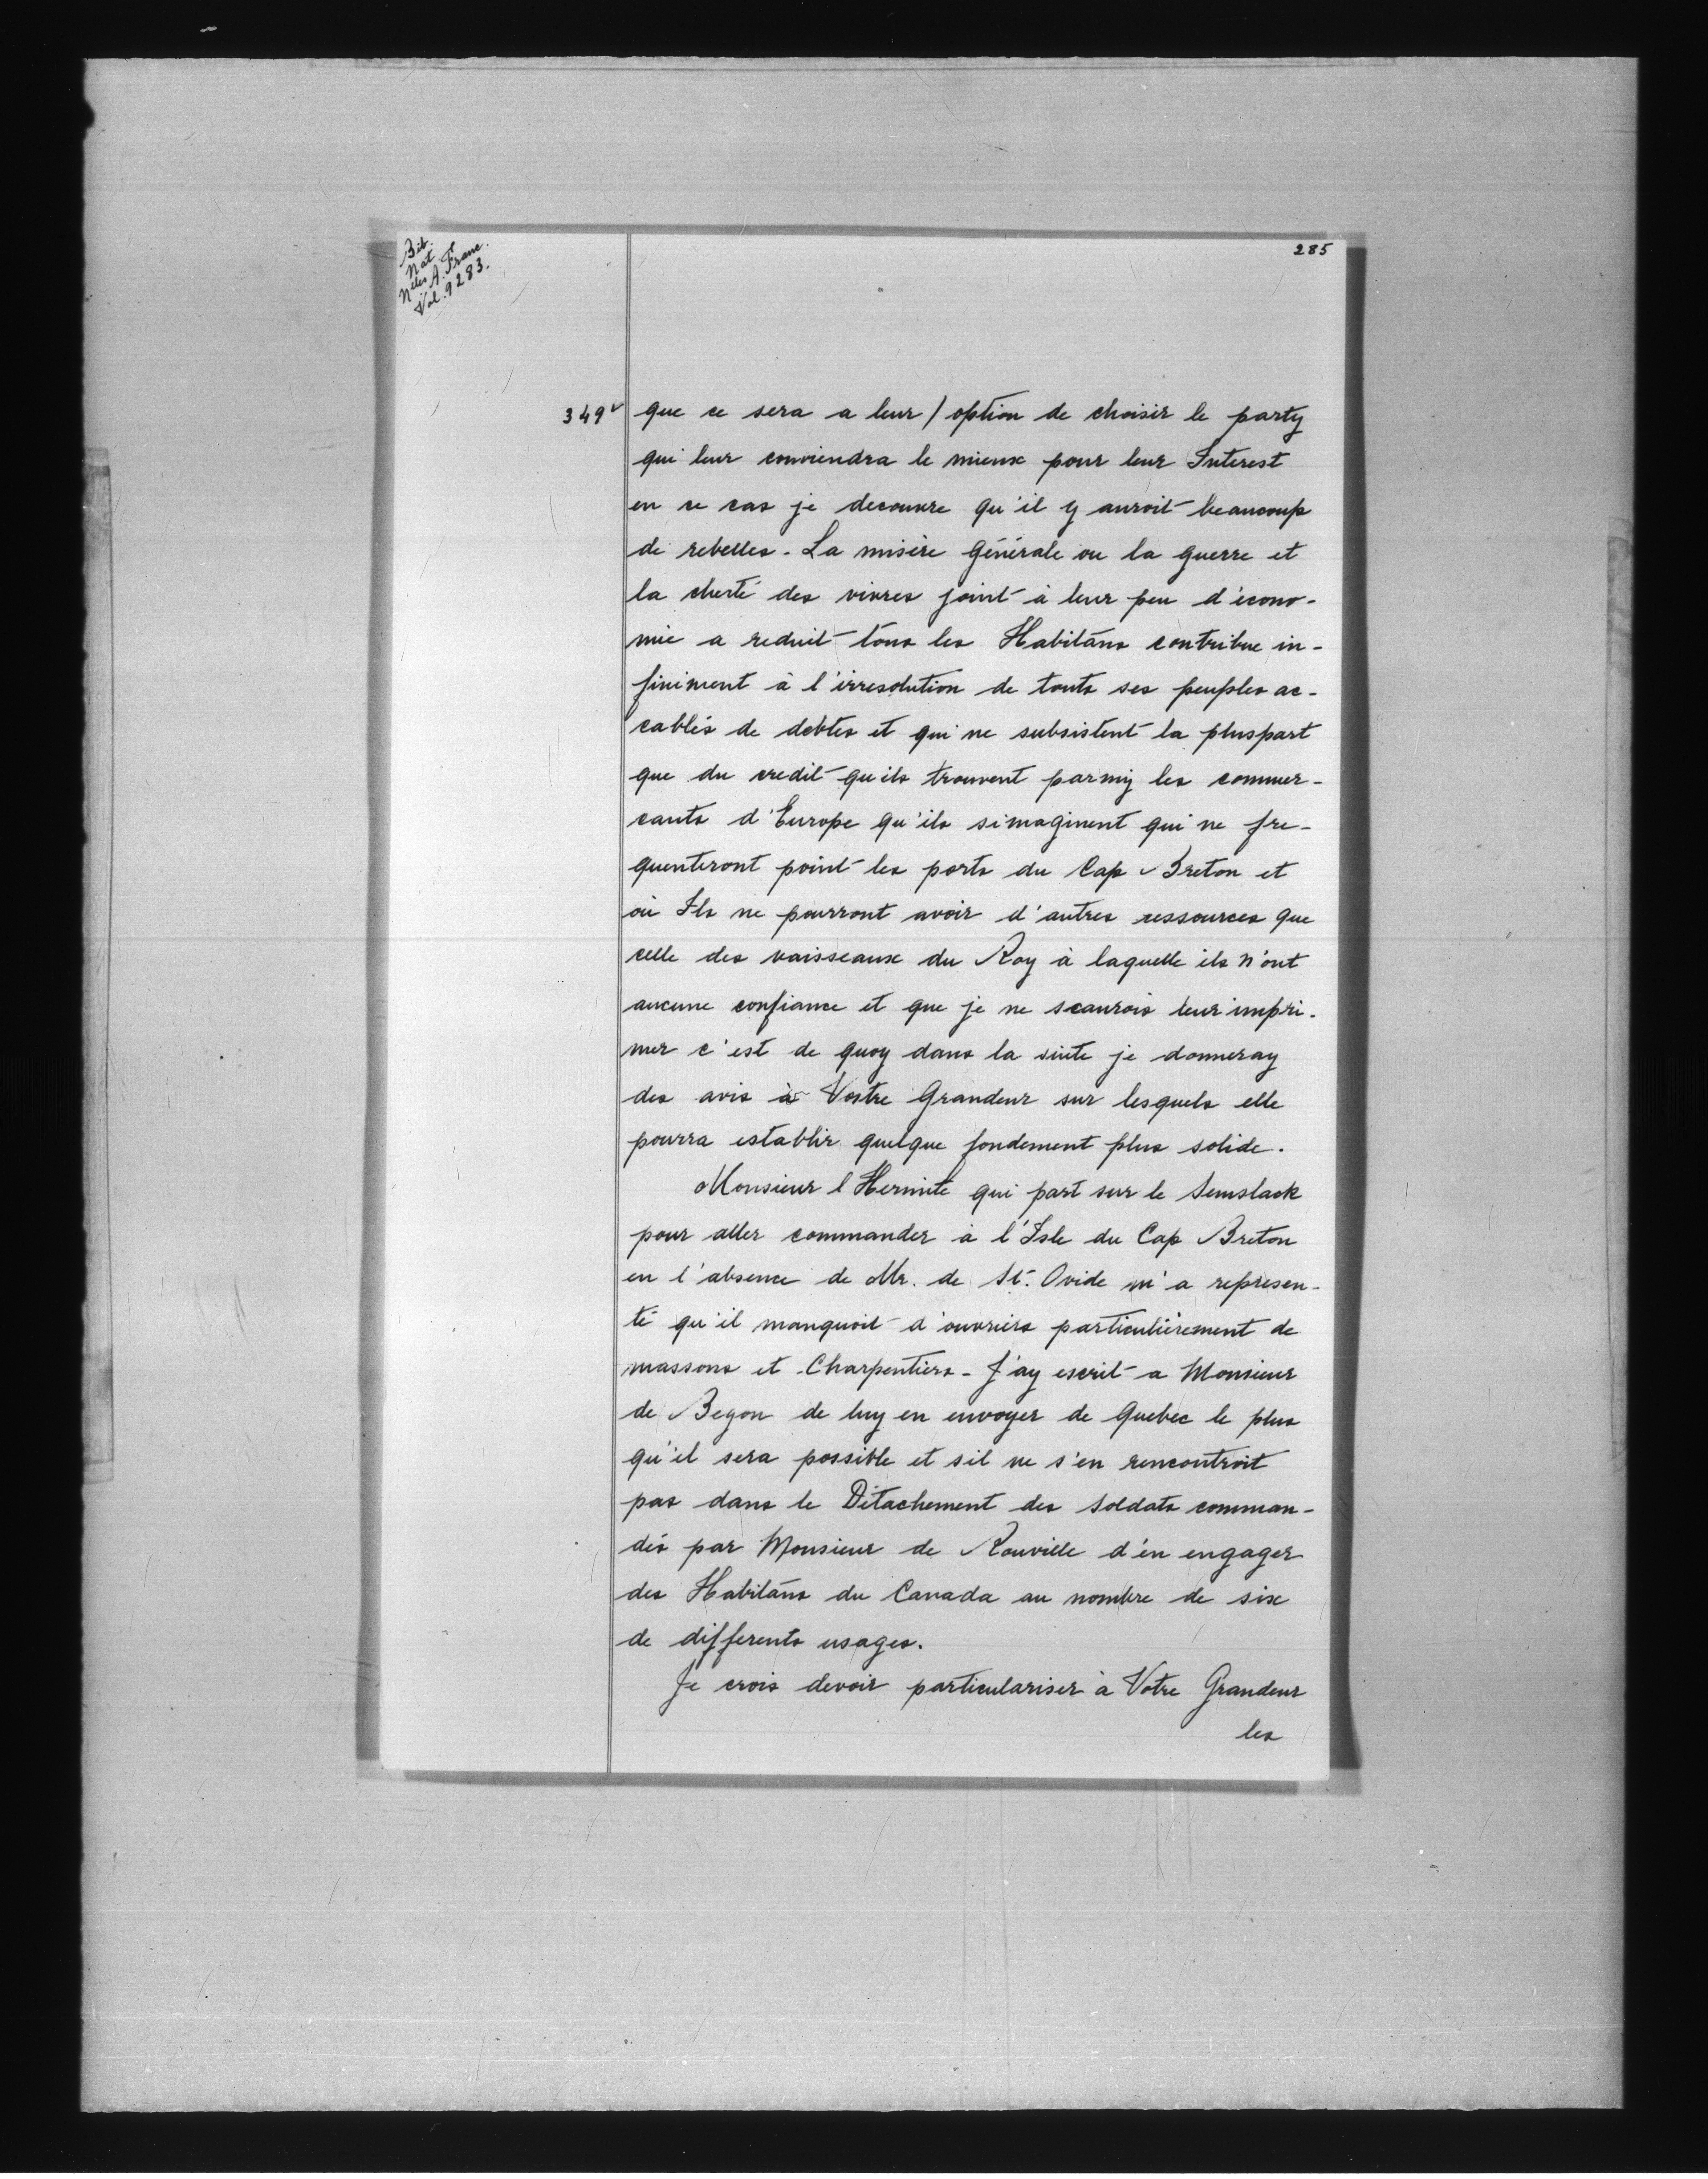 Bib.
Nat.
Nelles A. Franc.
Vol. 9283.
285
349v
que ce sera a leur / option de choisir le party
qui leur conviendra le mieux pour leur Interest
en ce cas je decouvre qu'il y auroit beaucoup
de rebelles - La misère générale ou la guerre et
la cherté des vivres joint à leur peu d'écono-
mie a reduit tous les Habitans contribue in-
finiment à l'irresolution de touts ses peuples ac-
cablés de debtes et qui ne subsistent la pluspart
que du credit qu'ils trouvent parmy les commer-
cants d'Europe qu'ils simaginent qui ne fre-
quenteront point les ports du Cap Breton et
où Ils ne pourront avoir d'autres ressources que
celle des vaisseaux du Roy à laquelle ils n'ont
aucune confiance et que je ne scaurois leur impri-
mer c'est de quoy dans la suite je donneray
des avis à Vostre Grandeur sur lesquels elle
pourra establir quelque fondement plus solide.
Monsieur l'Hermite qui part sur le Semslack
pour aller commander à l'Isle du Cap Breton
en l'absence de Mr. de St. Ovide m'a represen-
té qu'il manquoit d'ouvriers particulièrement de
massons et Charpentiers - J'ay escrit a Monsieur
de Begon de luy en envoyer de Quebec le plus
qu'il sera possible et sil ne s'en rencontroit
pas dans le Détachement des soldats comman-
dés par Monsieur de Rouville d'en engager
des Habitans du Canada au nombre de six
de differents usages.
Je crois devoir particulariser à Votre Grandeur
les